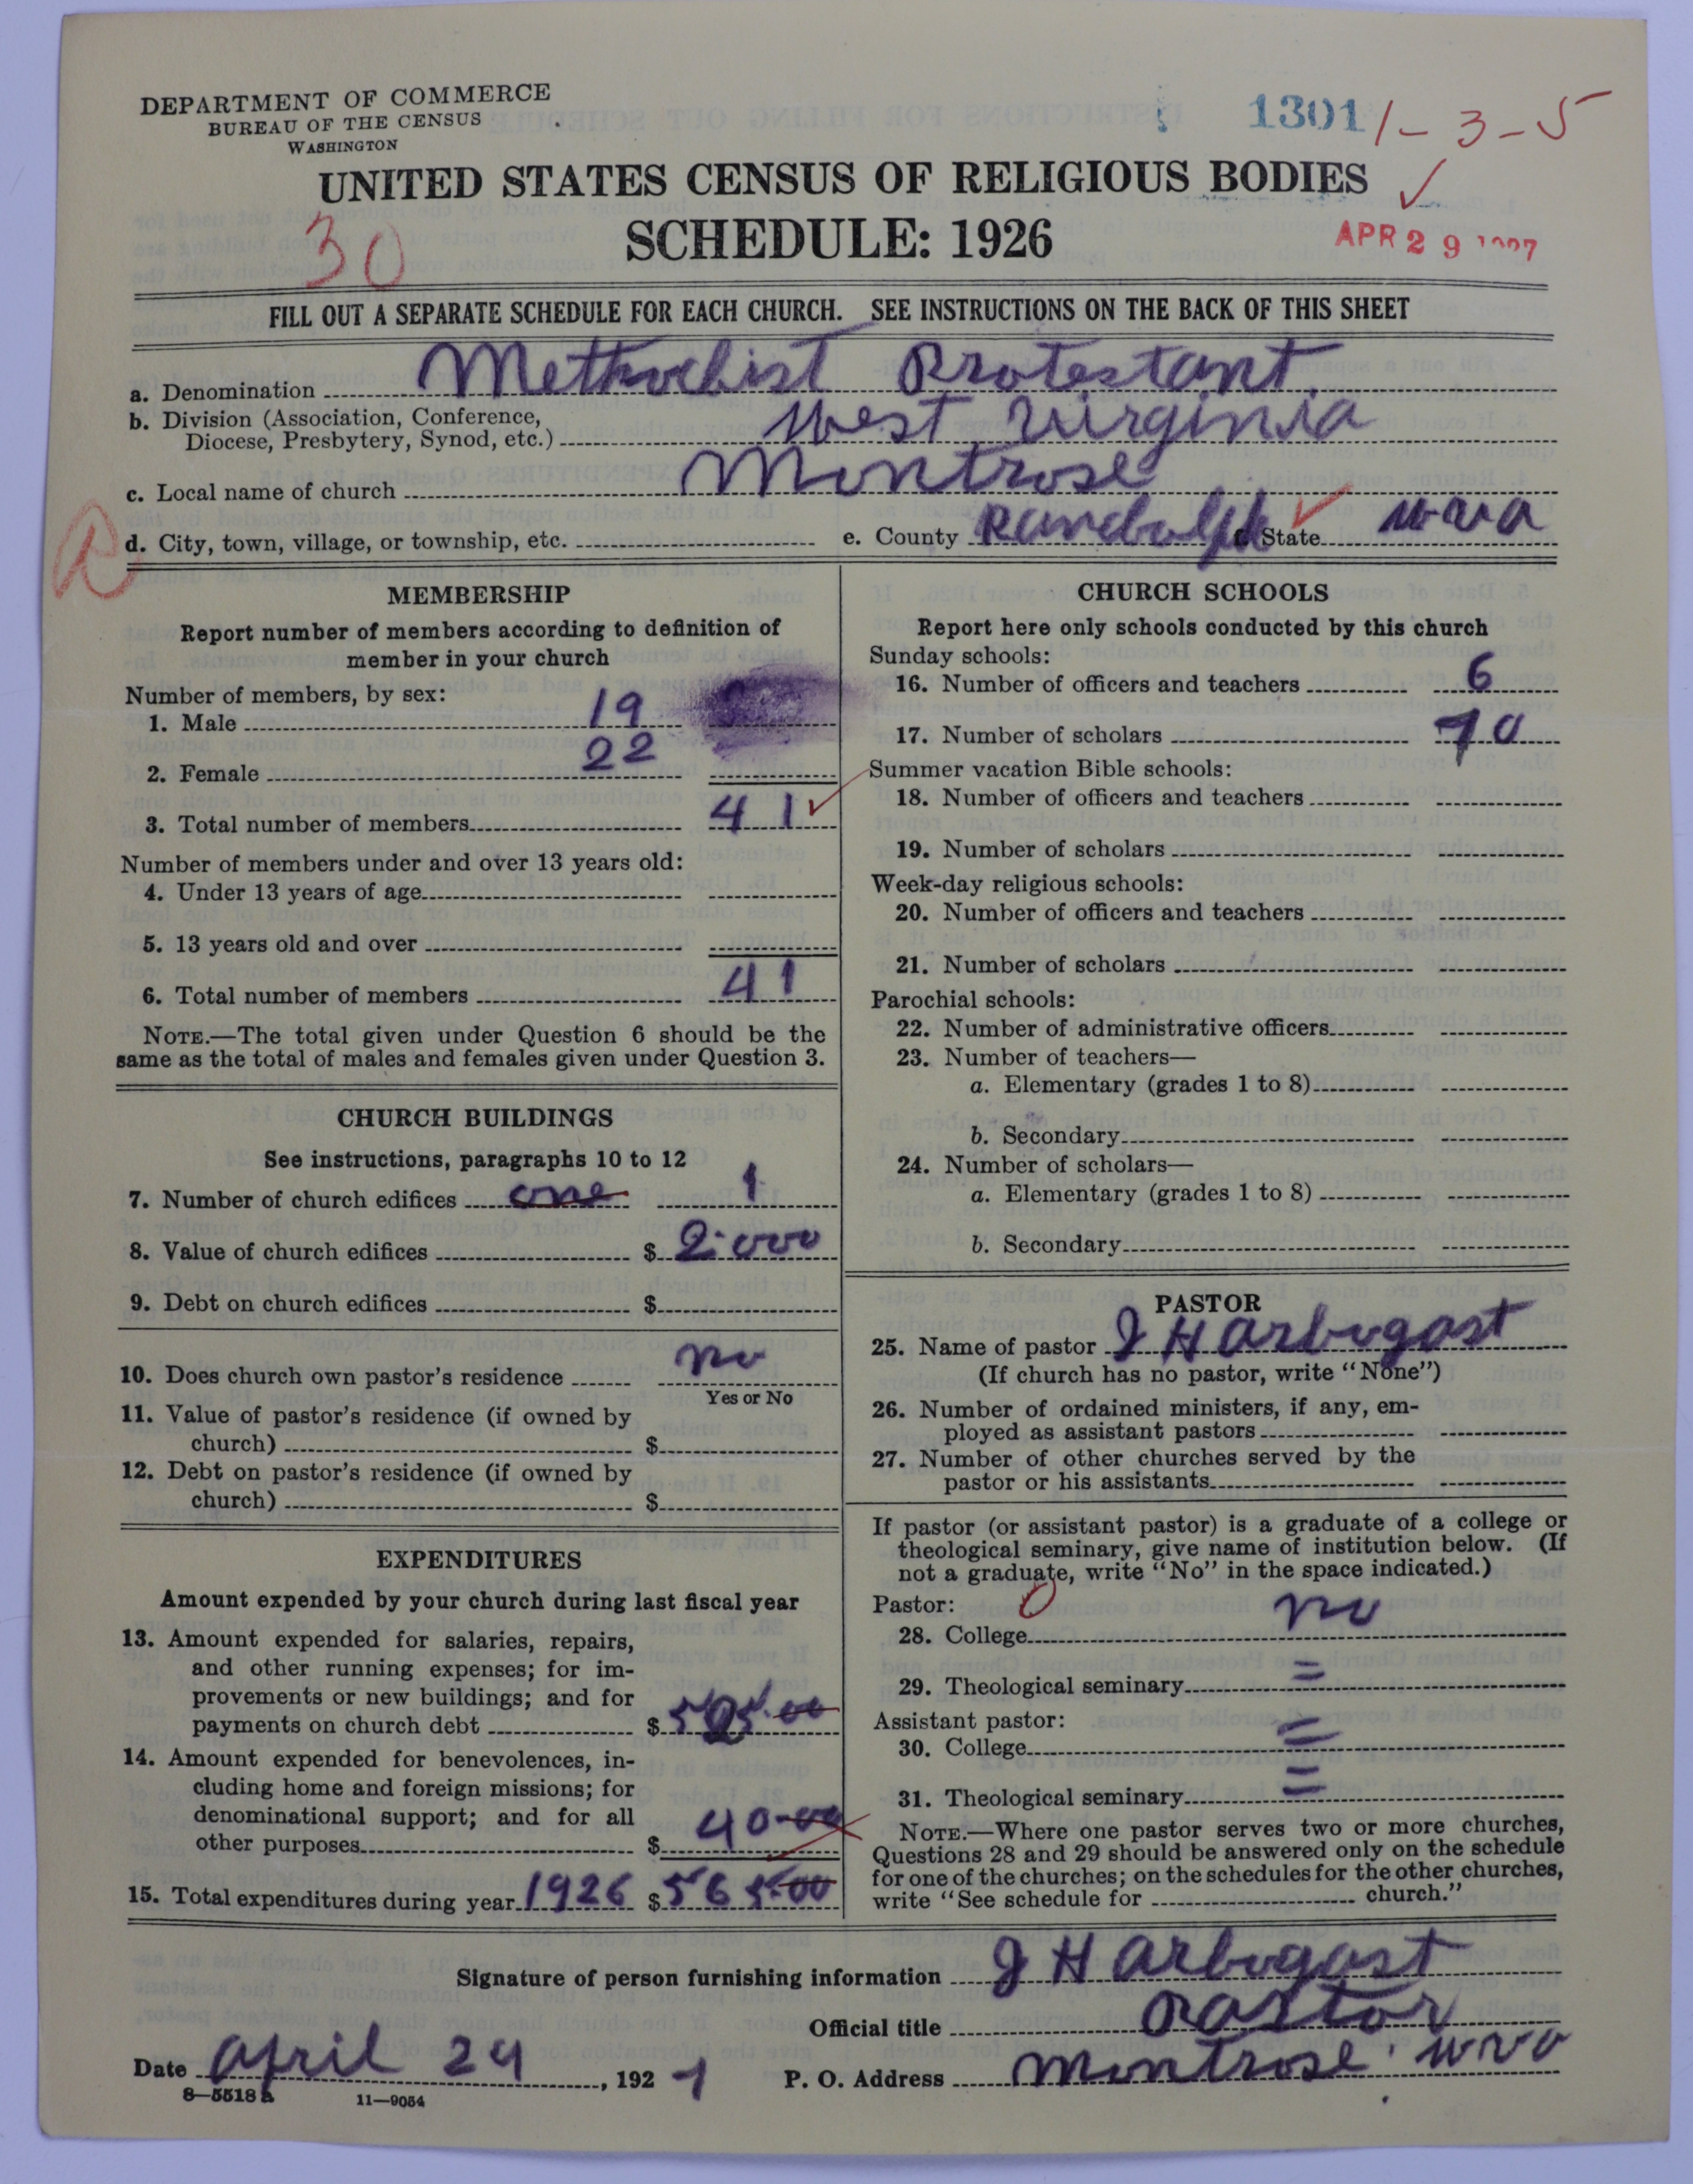 DEPARTMENT OF COMMERCE
BUREAU OF THE CENSUS
WASHINGTON
1301 1-3-5
UNITED STATES CENSUS OF RELIGIOUS BODIES
SCHEDULE: 1926
30
APR 29
FILL OUT A SEPARATE SCHEDULE FOR EACH CHURCH. SEE INSTRUCTIONS ON THE BACK OF THIS SHEET
a. Denomination Methodist Protestant
b. Division (Association, Conference,
Diocese, Presbytery, Synod, etc.) West Virginia
c. Local name of church Montrose
d. City, town, village, or township, etc. e. County Randolph State W va
MEMBERSHIP
Report number of members according to definition of
member in your church
Number of members, by sex:
1. Male 19
2. Female 22
3. Total number of members 41
Number of members under and over 13 years old:
4. Under 13 years of age
5. 13 years old and over
6. Total number of members 41
NOTE.—The total given under Question 6 should be the
same as the total of males and females given under Question 3.
CHURCH BUILDINGS
See instructions, paragraphs 10 to 12
7. Number of church edifices one 1
8. Value of church edifices $ 2000
9. Debt on church edifices $
10. Does church own pastor's residence no
Yes or No
11. Value of pastor's residence (if owned by
church) $
12. Debt on pastor's residence (if owned by
church) $
EXPENDITURES
Amount expended by your church during last fiscal year
13. Amount expended for salaries, repairs,
and other running expenses; for im-
provements or new buildings; and for
payments on church debt $ 525.00
14. Amount expended for benevolences, in-
cluding home and foreign missions; for
denominational support; and for all
other purposes $ 40-00
15. Total expenditures during year 1926 $ 565.00
CHURCH SCHOOLS
Report here only schools conducted by this church
Sunday schools:
16. Number of officers and teachers 6
17. Number of scholars 70
Summer vacation Bible schools:
18. Number of officers and teachers
19. Number of scholars
Week-day religious schools:
20. Number of officers and teachers
21. Number of scholars
Parochial schools:
22. Number of administrative officers
23. Number of teachers—
a. Elementary (grades 1 to 8)
b. Secondary
24. Number of scholars—
a. Elementary (grades 1 to 8)
b. Secondary
PASTOR
25. Name of pastor J H Arbogast
(If church has no pastor, write "None")
26. Number of ordained ministers, if any, em-
ployed as assistant pastors
27. Number of other churches served by the
pastor or his assistants
If pastor (or assistant pastor) is a graduate of a college or
theological seminary, give name of institution below. (If
not a graduate, write "No" in the space indicated.)
Pastor: 0
28. College no
29. Theological seminary =
Assistant pastor:
30. College =
31. Theological seminary =
NOTE.—Where one pastor serves two or more churches,
Questions 28 and 29 should be answered only on the schedule
for one of the churches; on the schedules for the other churches,
write "See schedule for church."
Signature of person furnishing information J H Arbogast
Official title Pastor
Date April 24, 1927 P. O. Address Montrose W va
8—5518 a 11—9054